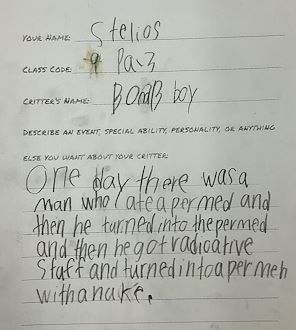 YOUR NAME: Stelios
CLASS CODE: Pa-3
CRITTER'S NAME: boy
DESCRIBE AN EVENT, SPECIAL ABILITY, PERSONALITY, OR ANYTHING
ELSE YOU WANT ABOUT YOUR CRITTER:
One day there was a
man who ate a permed and
then he turned into the permed
and then he got radioative
Staff and turned into a per meh
with a nake.